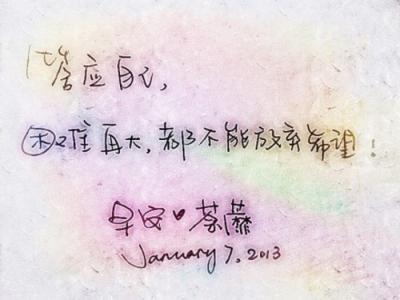 答应自己，
困难再大，都不能放弃希望！
早安♥
January 7, 2013